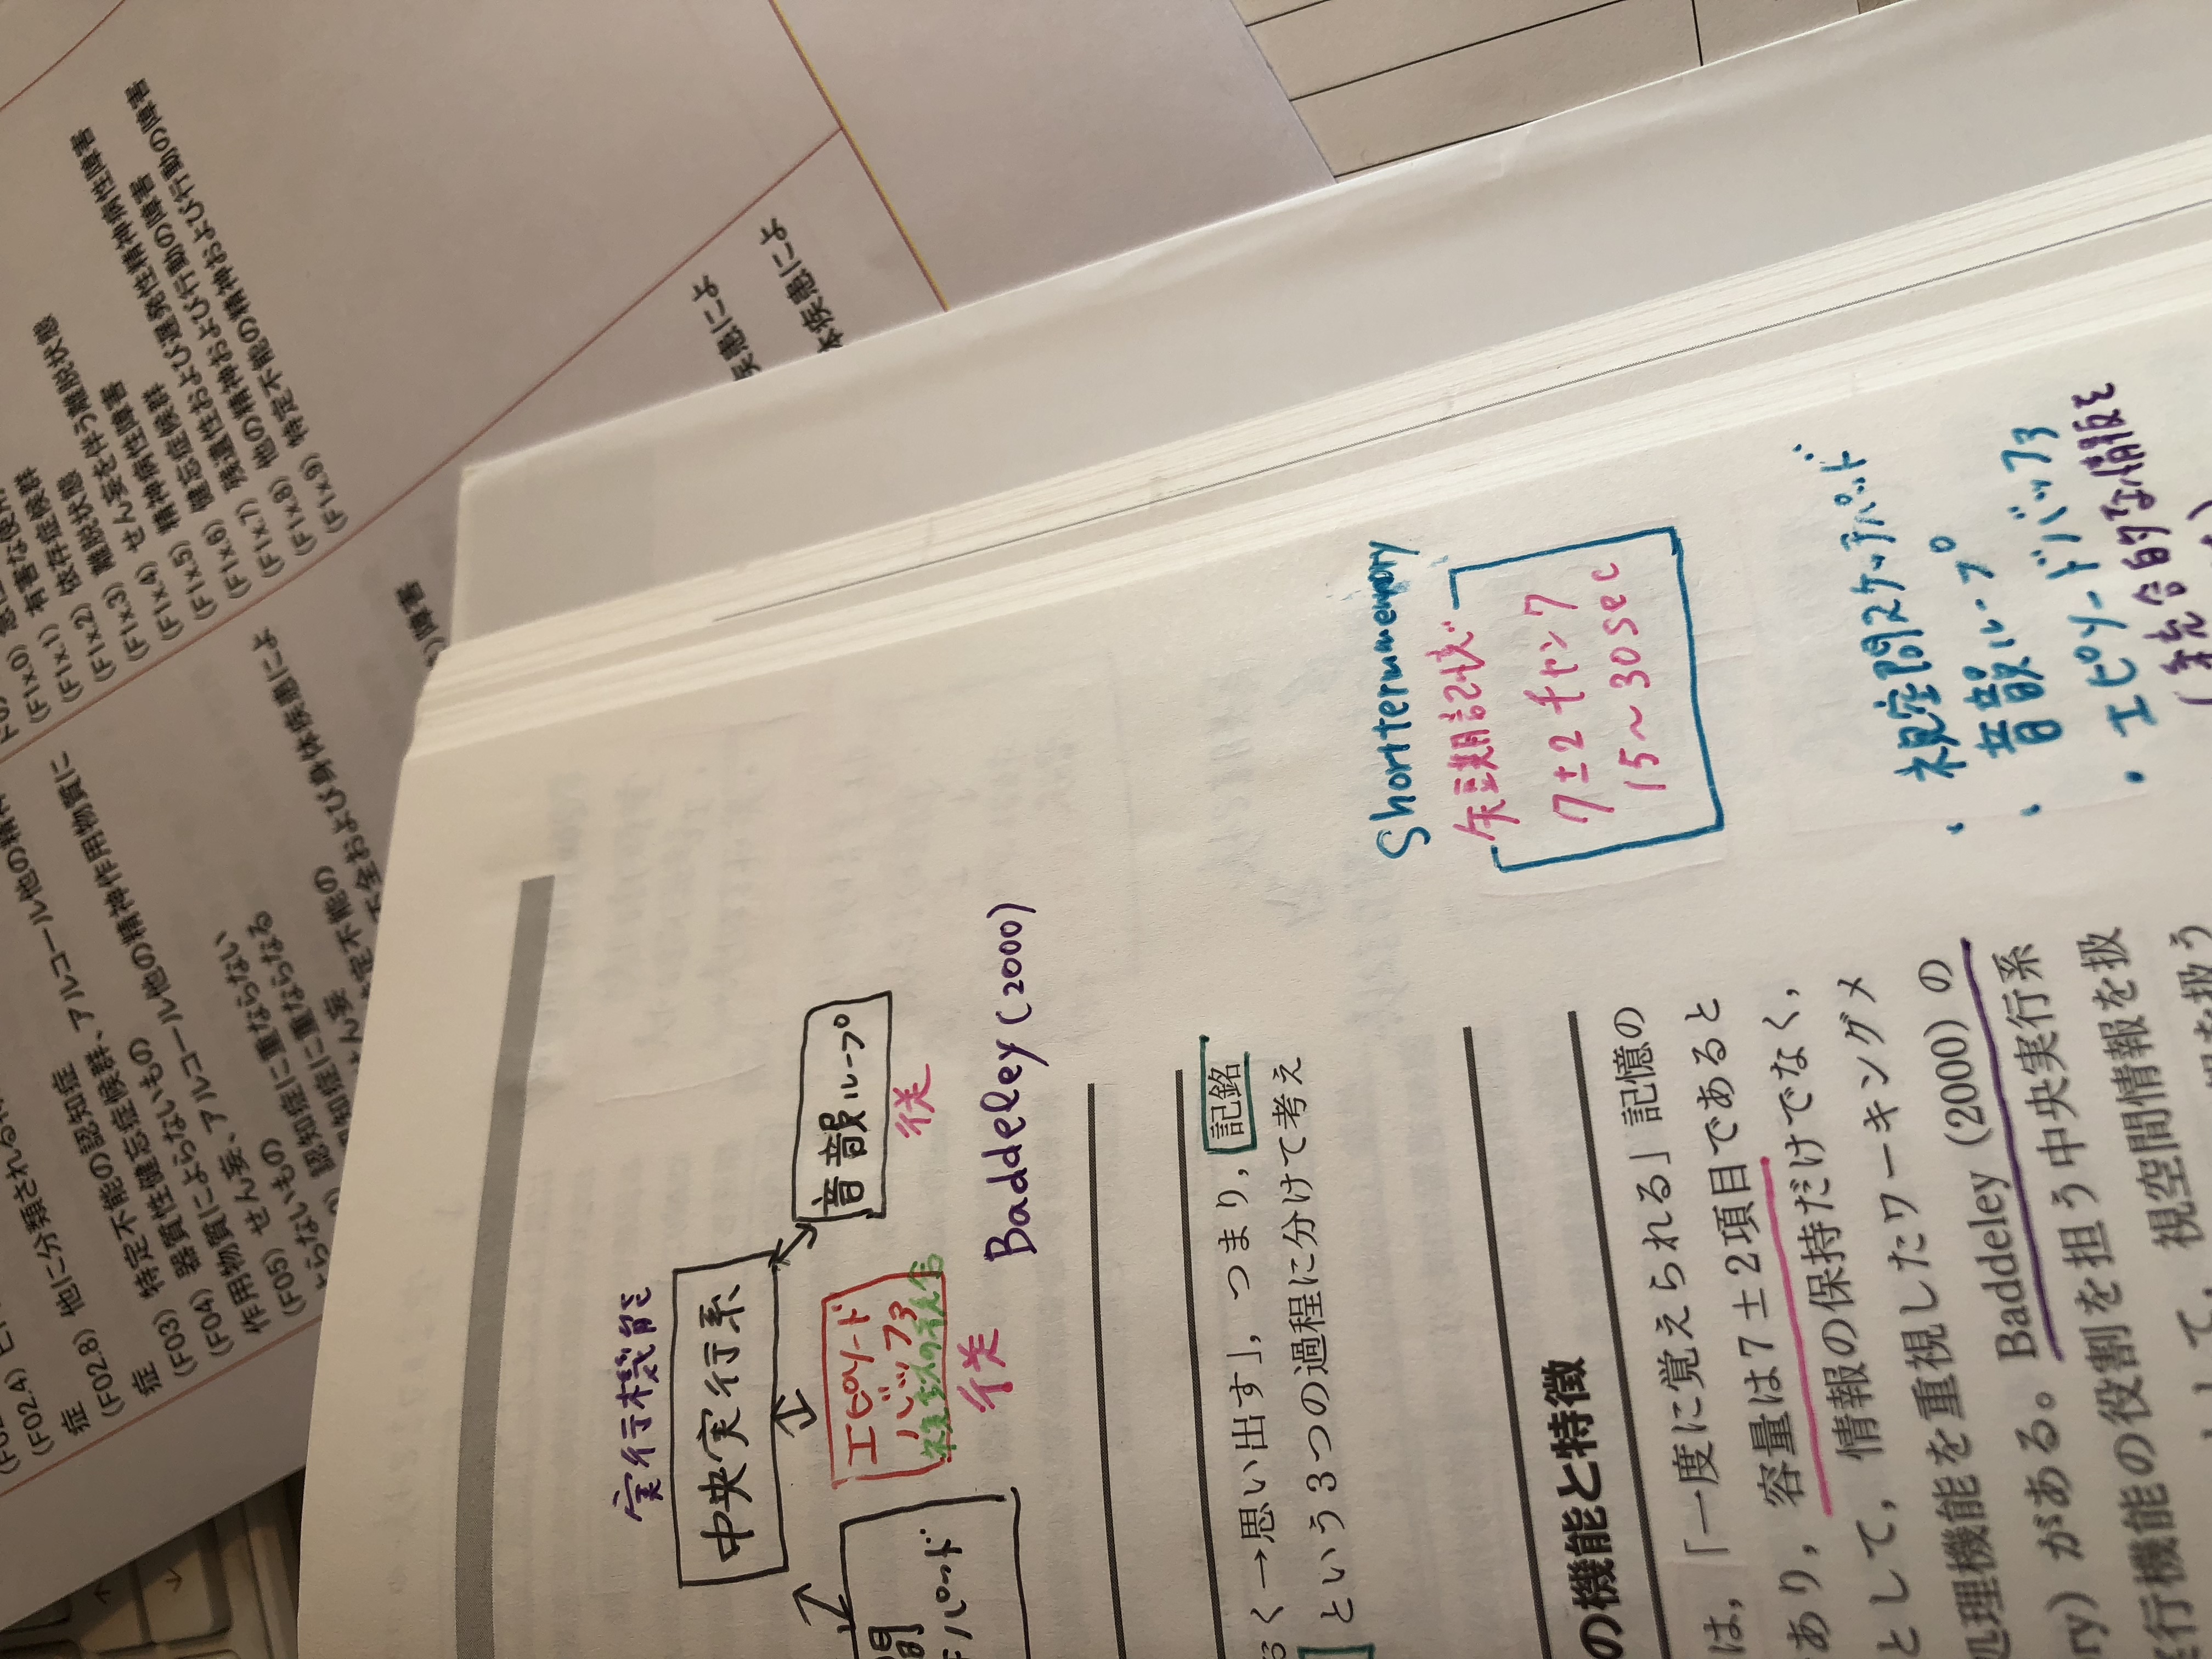 実行機能
中央実行系
音韻ループ
従
エピソード
バッファ
従
間
パッド
Baddeley (2000)
→思い出す」，つまり，記銘
という3つの過程に分けて考え
の機能と特徴
は，「一度に覚えられる」記憶の
あり，容量は7±2項目であると
として，情報の保持だけでなく，
処理機能を重視したワーキングメ
ry) がある。Baddeley (2000) の
行機能の役割を担う中央実行系
して，視空間情報を扱
Short term memory
短期記憶
7±2チャンク
15～30sec
・視空間スケッチパッド
・音韻ループ
・エピソードバッファ
(統合的な情報を
(F02.4)
(F02.8) 他に分類される
症
(F03) 特定不能の認知症
(F04) 器質性健忘症候群、アルコール他の精神作用物質に
よらないもの
(F05) せん妄、アルコール他の精神
作用物質によらないもの
せん妄、認知症に重ならない
認知症に重ならなる
せん妄
特定不能の
および身体疾患によ
障害
(F1x.0)
(F1x.1) 有害な使用
(F1x.2) 依存症候群
(F1x.3) 離脱状態
(F1x.4) せん妄を伴う離脱状態
(F1x.5) 精神病性障害
(F1x.6) 健忘症候群
(F1x.7) 残遺性および遅発性精神病性障害
(F1x.8) 他の精神および行動の障害
(F1x.9) 特定不能の精神および行動の障害
疾患によ
疾患によ